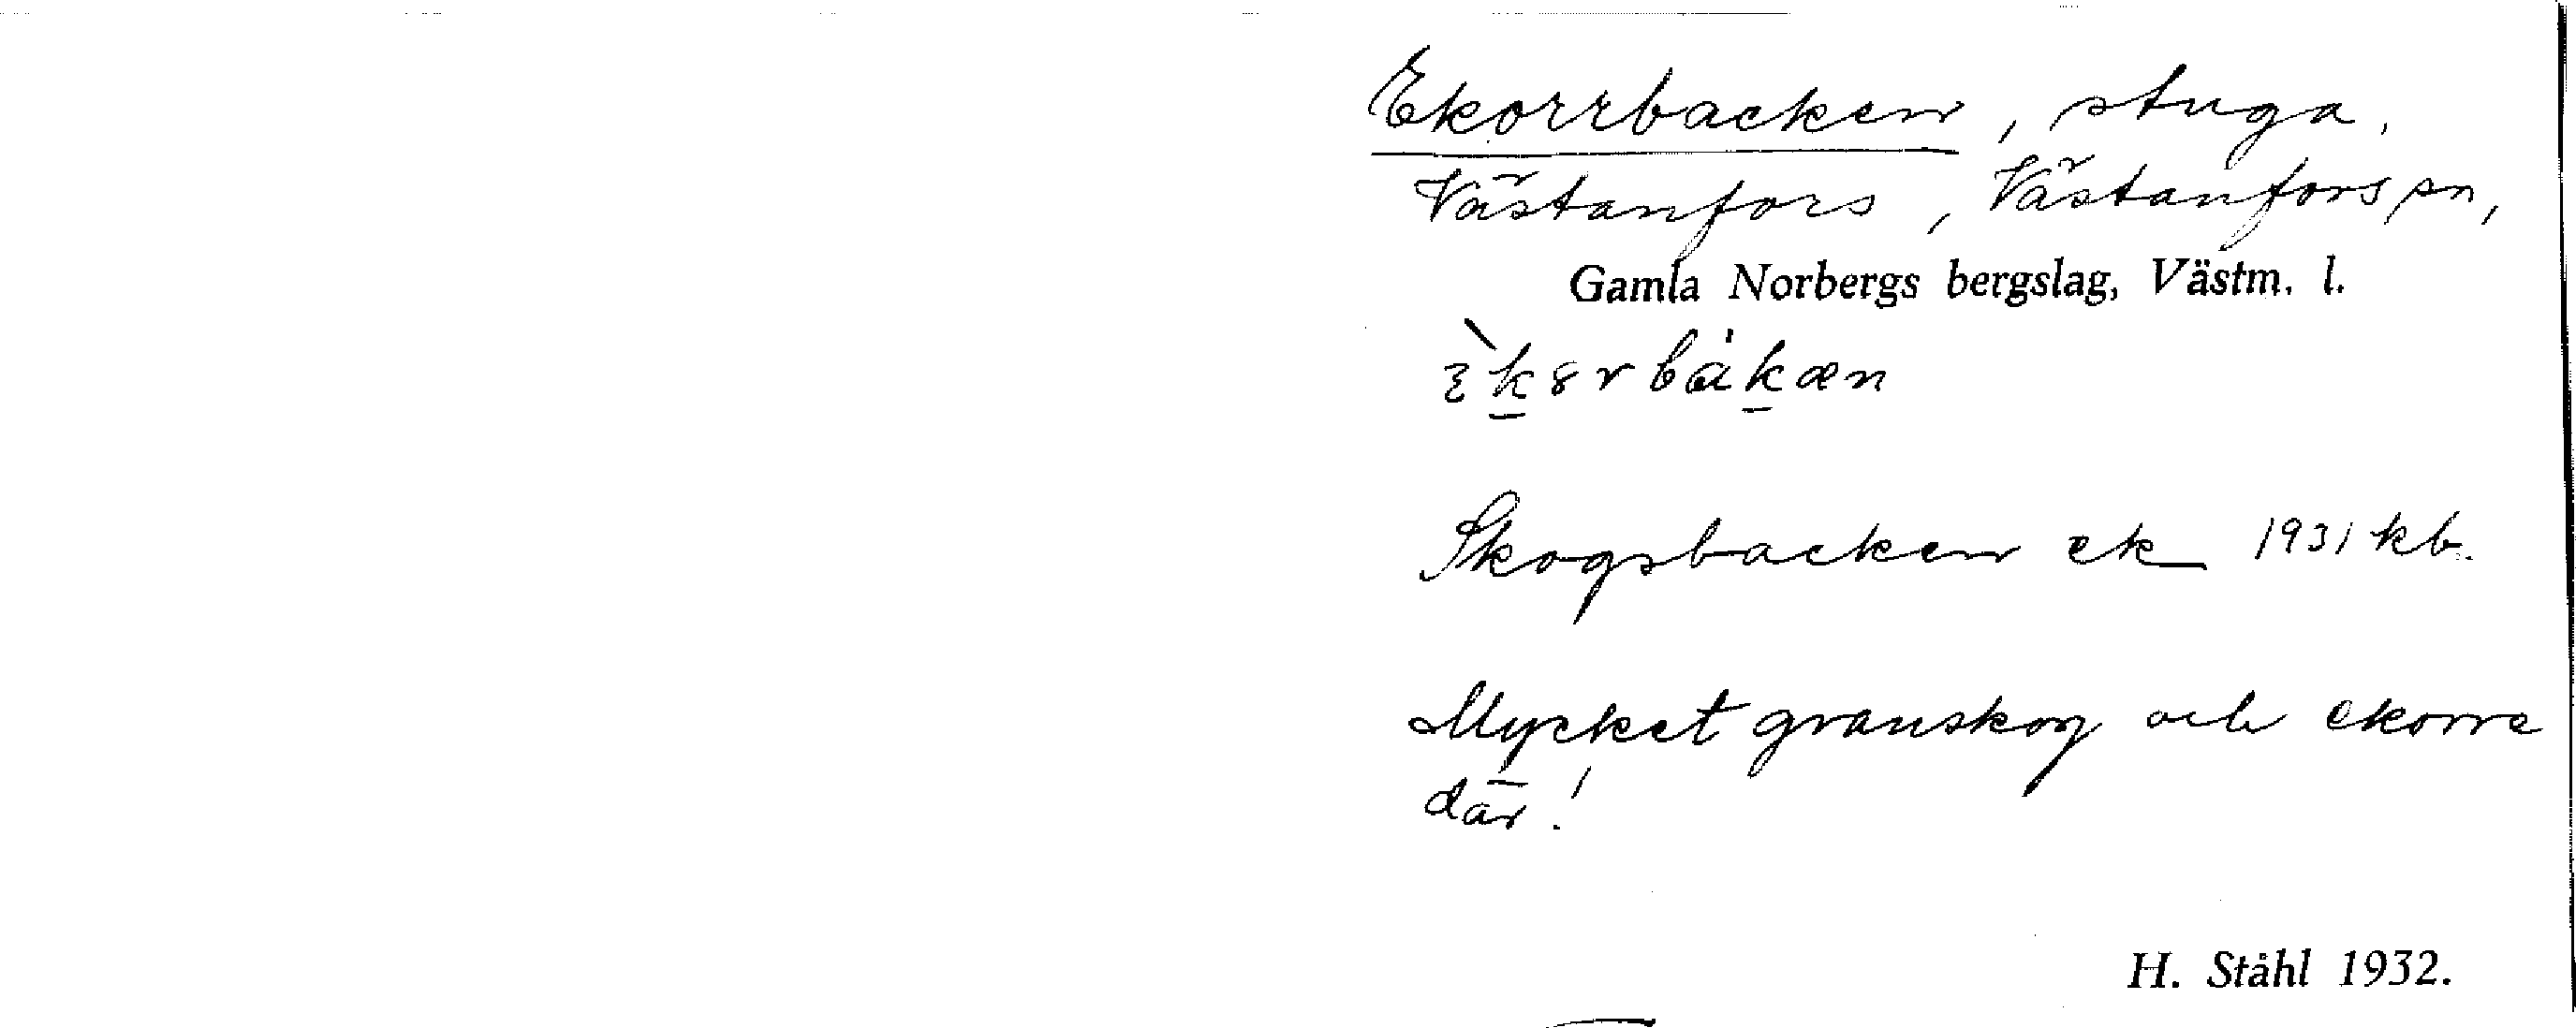 Ekorrbacken, stuga,
Västanfors, Västanfors sn,
Gamla Norbergs bergslag, Västm. l.
Skogsbacken ek 1931 kb.
Mycket granskog och ekorre
där!
H. Ståhl 1932.